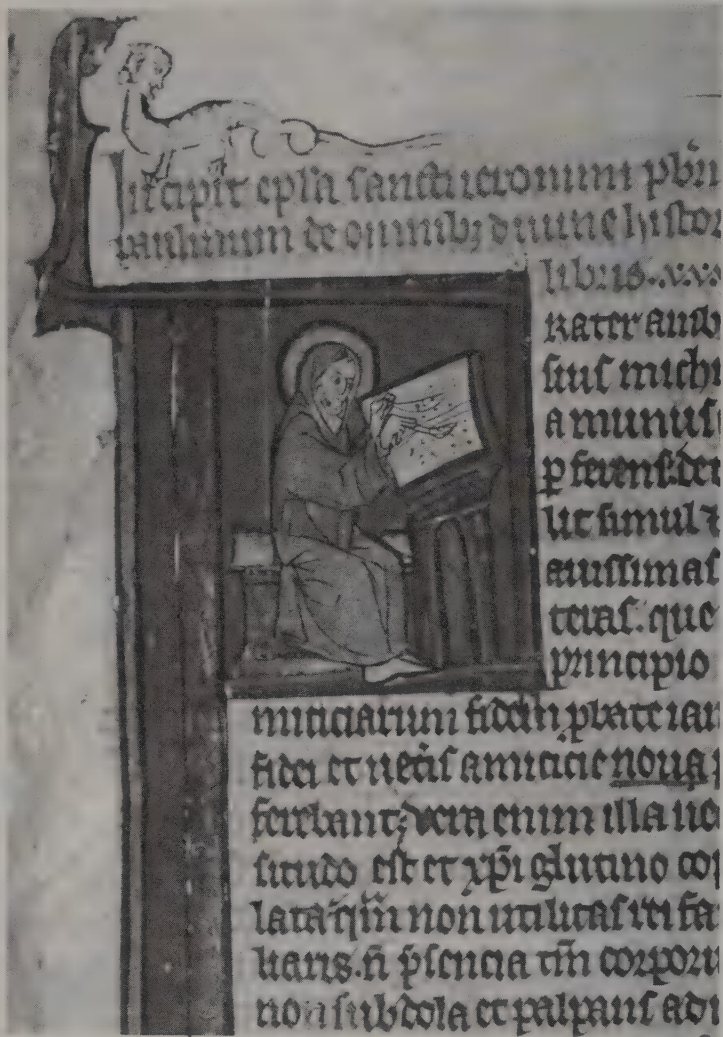 Incipit epl̃a sancti ieronimi pb̃ri
paulinum de omnibꝫ diuine histor
libris.
rater amb
sius michi
a munus
ꝑ ferens. det
lit simul ⁊
auissimas
teras. que
principio
miciciarum fidem ꝓbate iam
fidei et uet̃is amicicie noua
ferebant; vera enim illa ne
situdo est et xp̃i glutino co
lata q̃m non utilitas rei fa
liaris. ñ p̃sencia tm̃ corporu
non subdola et palpans ad